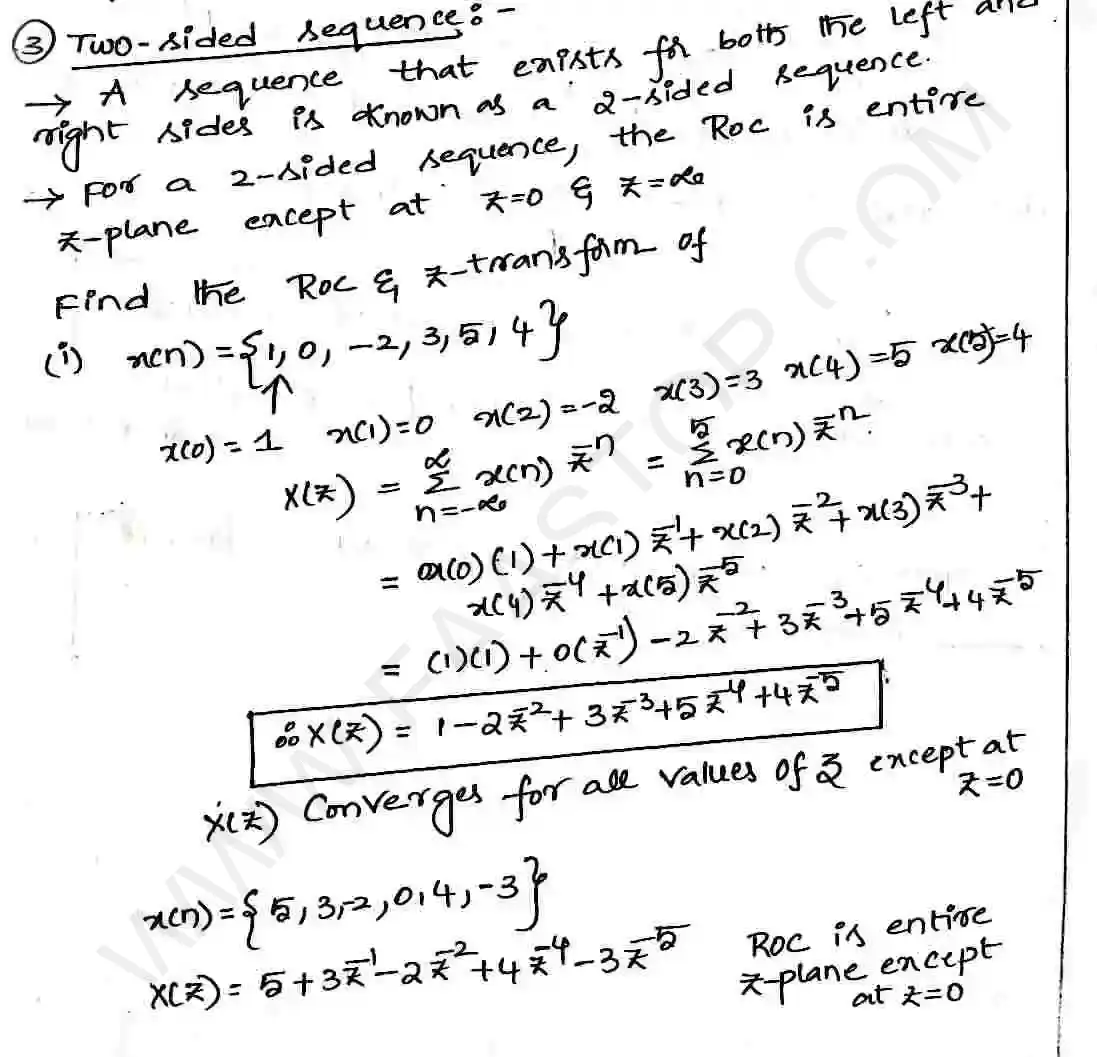 ③ Two-sided sequence:-
→ A sequence that exists for both the left and
right sides is known as a 2-sided sequence.
→ For a 2-sided sequence, the Roc is entire
z-plane except at z=0 & z=∞
Find the Roc & z-transform of
(i) x(n) = {1, 0, -2, 3, 5, 4}
↑
x(0) = 1 x(1)=0 x(2) = -2 x(3)=3 x(4)=5 x(5)=4
X(z) = ∞Σn=-∞ x(n) z⁻ⁿ = 5Σn=0 x(n) z⁻ⁿ.
= x(0)(1) + x(1) z⁻¹ + x(2) z⁻² + x(3) z⁻³ +
x(4) z⁻⁴ + x(5) z⁻⁵.
= (1)(1) + 0(z⁻¹) - 2 z⁻² + 3z⁻³ + 5 z⁻⁴ + 4 z⁻⁵
∴ X(z) = 1 - 2z⁻² + 3z⁻³ + 5z⁻⁴ + 4z⁻⁵
X(z) Converges for all values of z except at
z=0
x(n) = {5, 3, -2, 0, 4, -3}
X(z) = 5 + 3z⁻¹ - 2z⁻² + 4z⁻⁴ - 3z⁻⁵
Roc is entire
z-plane except
at z=0
WWW.FEASTOP.COM